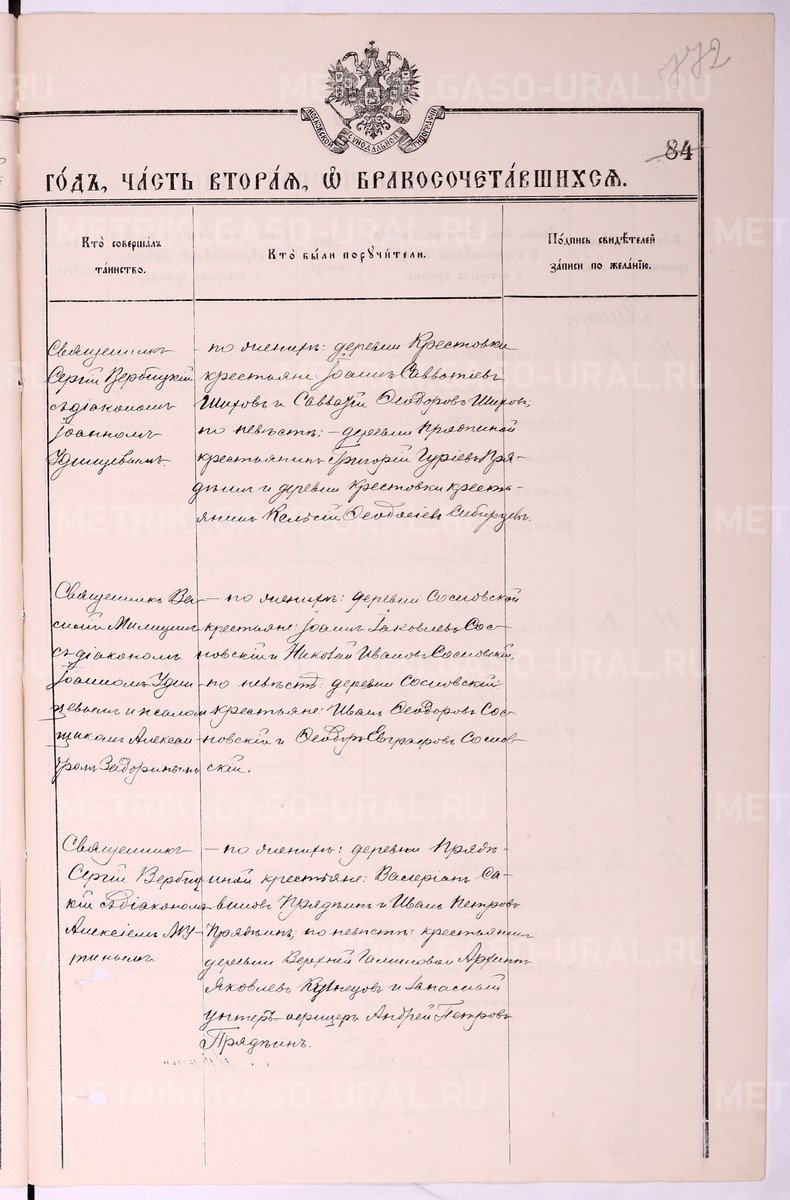 772
МОСКОВСКОЙ СѴНОДАЛЬНОЙ ТИПОГРАФІИ
84
ГО́ДЪ, ЧА́СТЬ ВТОРА́Я, Ѽ БРАКОСОЧЕТА́ВШИХСЯ.
Кто̀ соверша́лъ
та́инство.
Кто̀ бы́ли поручи́тели.
По́дпись свидѣ́телей
за́писи по жела́нїю.
Священникъ
Сергій Вербицкій
съ діакономъ
Іоанномъ
по женихѣ: деревни Крестовки
крестьяне: Іоаннъ Савватіевъ
Шиховъ и Савватій Ѳеодоровъ Шиховъ,
по невѣстѣ: – деревни Прядеиной
крестьянинъ Григорій Гуріевъ Пря-
дѣинъ и деревни Крестовки кресть-
янинъ Келсій Ѳеодосіевъ Сибирцевъ.
Священникъ Ва-
силій Милицинъ
съ діакономъ
Іоанномъ Удин-
цевымъ и псалом-
щикомъ Алексан-
дромъ Задоринымъ
– по женихѣ: деревни Сосновской
крестьяне: Іоаннъ Іаковлевъ Сос-
новскій и Николай Ивановъ Сосновскій;
по невѣстѣ: деревни Сосновской
крестьяне: Иванъ Ѳеодоровъ Сос-
новскій и Ѳеодоръ Евграфовъ Соснов-
скій.
Священникъ
Сергій Вербиц-
кій съ діакономъ
Алексіемъ
– по женихѣ: деревни Прядѣ-
иной крестьяне: Валеріанъ Са-
виновъ Прядѣинъ и Иванъ Петровъ
Прядѣинъ; по невѣстѣ: крестьянинъ
деревни Верхней Галишовой Архиппъ
Яковлевъ Кузнецовъ и запасный
унтеръ-офицеръ Андрей Петровъ
Прядѣинъ.
METRIKI.GASO-URAL.RU